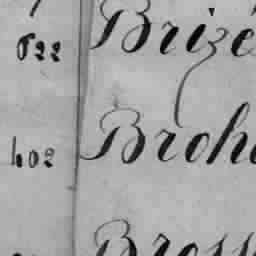 622 Brizé
402 Broh
Bross